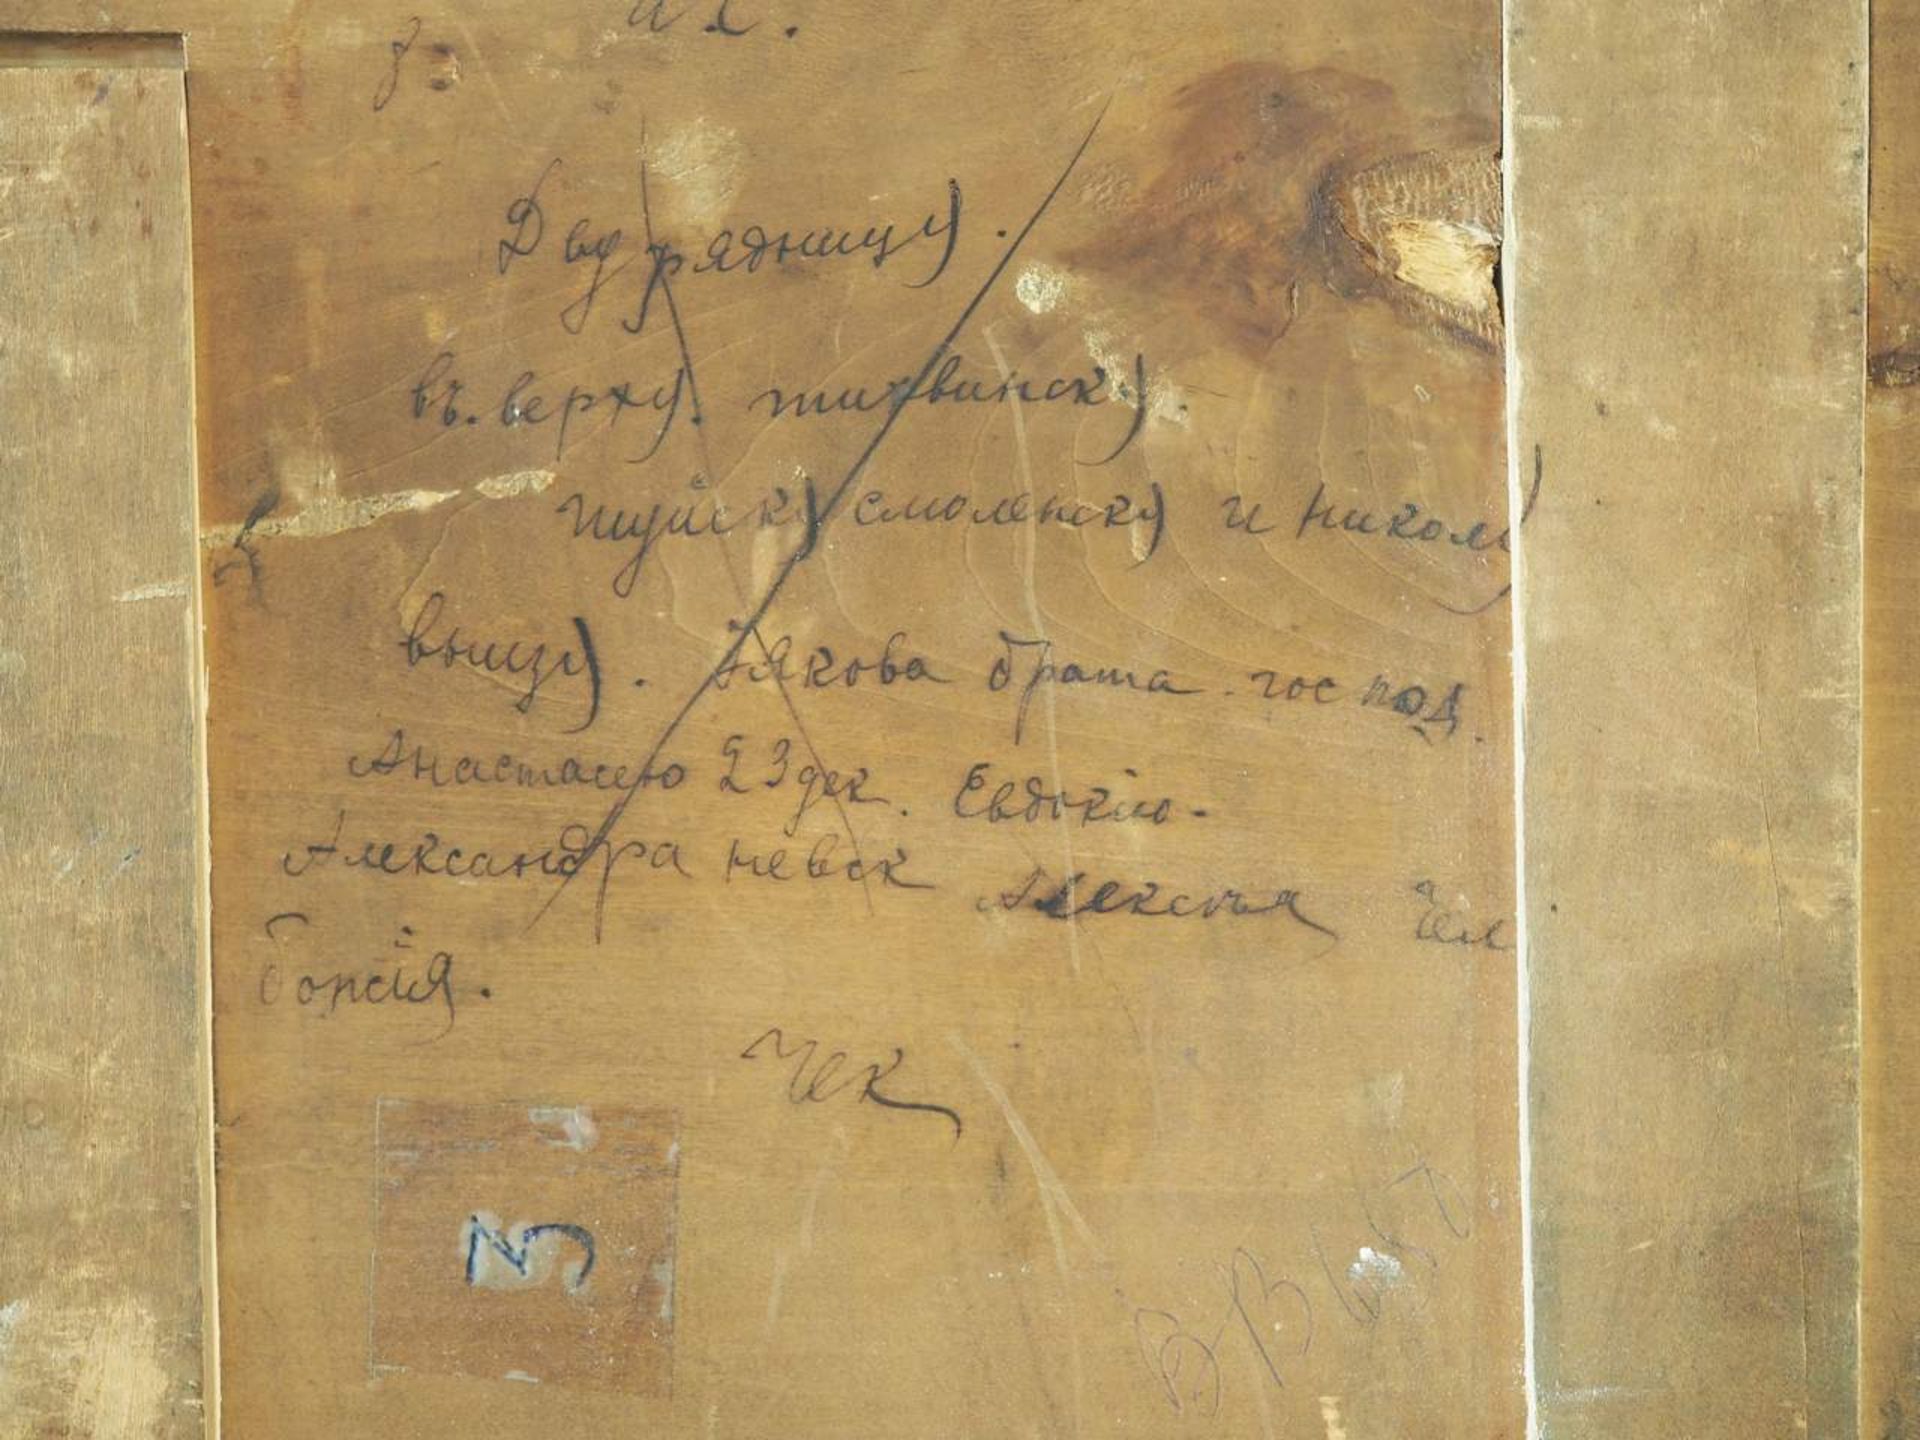 Двурядницу.
въ. верху. тихвинску.
шуйску смоленску и Николу
вынзу. Іякова брата. господ.
Анастасею 23 дек. Евдокію.
Александра невск Алексѣя Чел
Чек
3